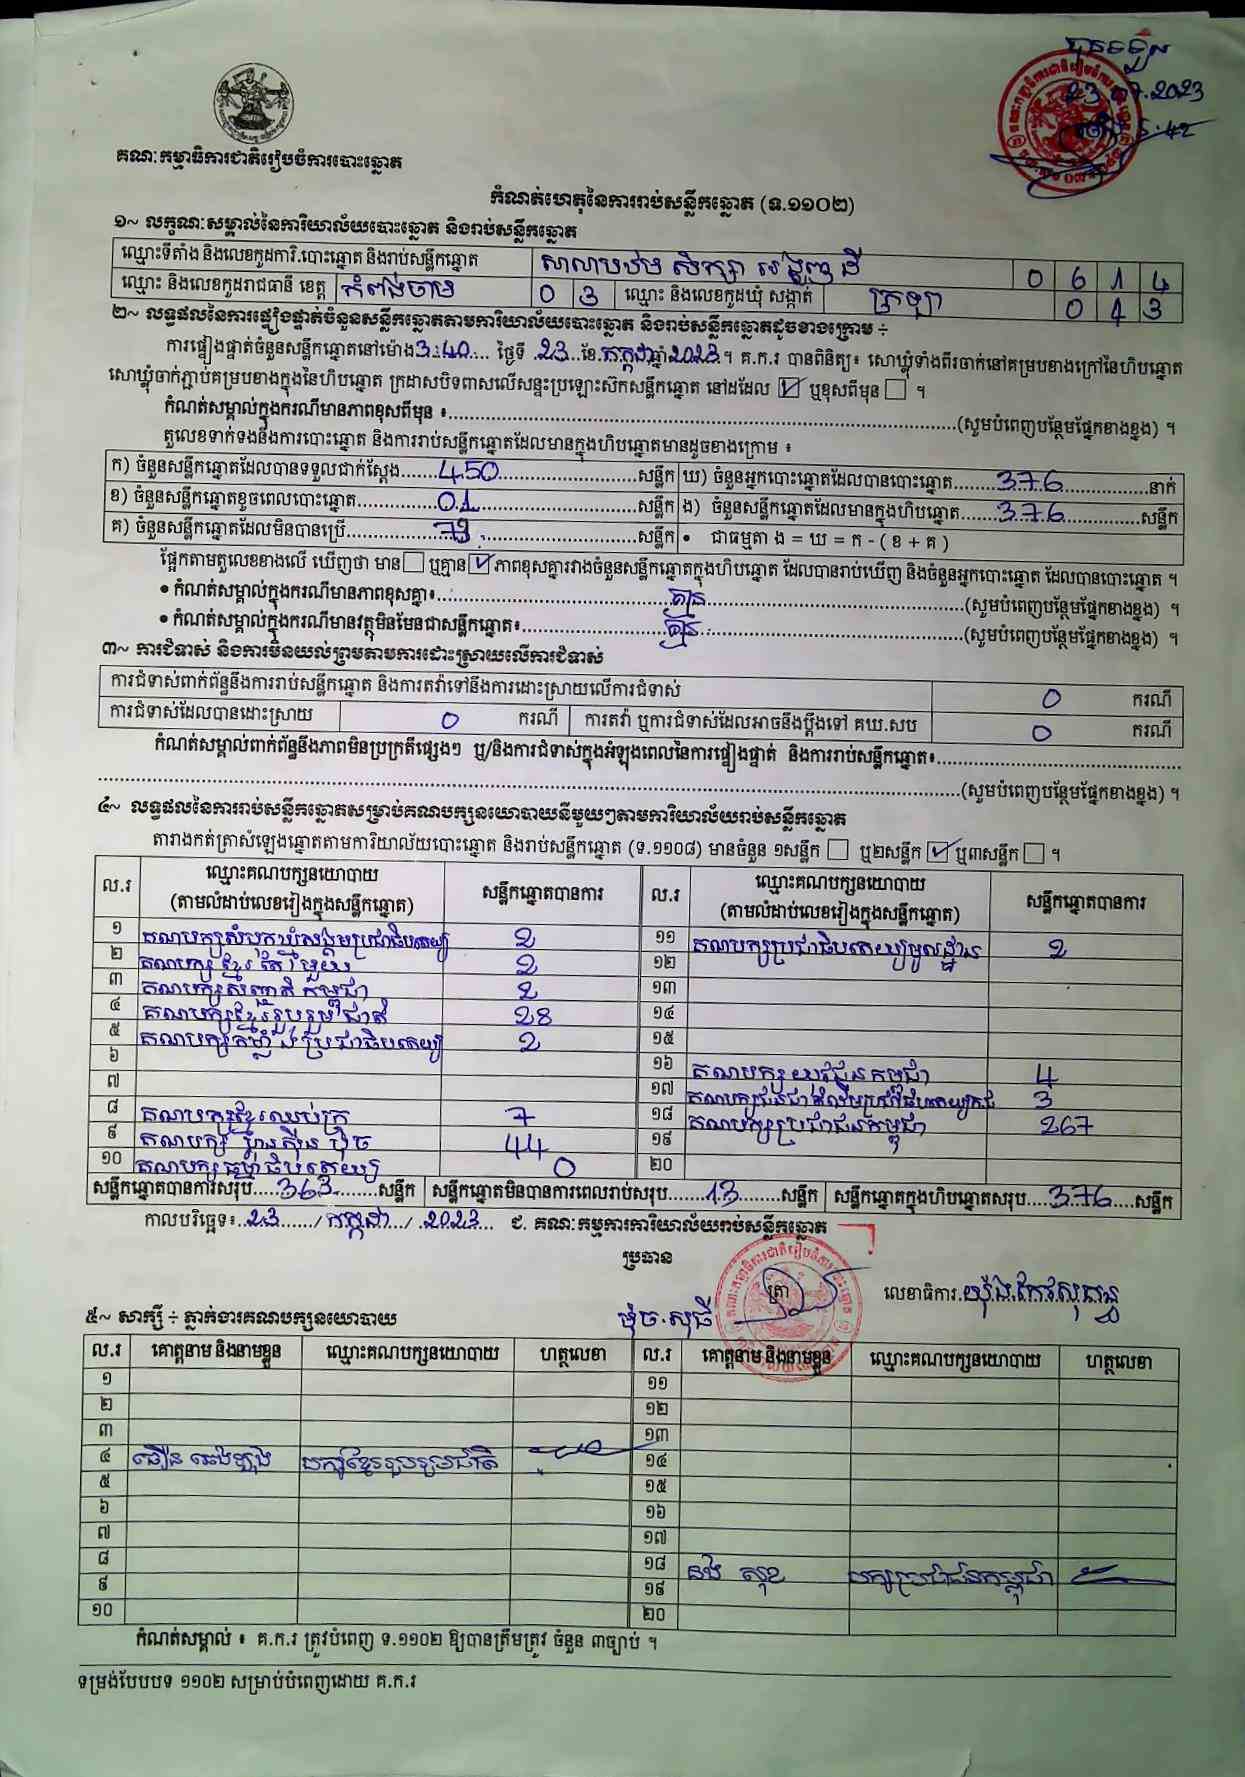 បានឃើញ
23.07.2023
5:42
គណៈកម្មាធិការជាតិរៀបចំការបោះឆ្នោត
កំណត់ហេតុនៃការរាប់សន្លឹកឆ្នោត (ទ.១១០២)
១~ លក្ខណៈសម្គាល់នៃការិយាល័យបោះឆ្នោត និងរាប់សន្លឹកឆ្នោត
ឈ្មោះទីតាំង និងលេខកូដការិ.បោះឆ្នោត និងរាប់សន្លឹកឆ្នោត សាលាបឋមសិក្សា 0 6 1 4
ឈ្មោះ និងលេខកូដរាជធានី ខេត្ត កំពង់ចាម 0 3 ឈ្មោះ និងលេខកូដឃុំ សង្កាត់ ក្រឡា 0 4 3
២~ លទ្ធផលនៃការផ្ទៀងផ្ទាត់ចំនួនសន្លឹកឆ្នោតតាមការិយាល័យបោះឆ្នោត និងរាប់សន្លឹកឆ្នោតដូចខាងក្រោម ÷
ការផ្ទៀងផ្ទាត់ចំនួនសន្លឹកឆ្នោតនៅម៉ោង 3:40 ថ្ងៃទី 23 ខែ កក្កដា ឆ្នាំ 2023 ។ គ.ក.រ បានពិនិត្យ៖ សោឃ្លុំទាំងពីរចាក់នៅគម្របខាងក្រៅនៃហិបឆ្នោត
សោឃ្លុំចាក់ភ្ជាប់គម្របខាងក្នុងនៃហិបឆ្នោត ក្រដាសបិទពាសលើសន្ទះប្រឡោះស៊កសន្លឹកឆ្នោត នៅដដែល ☑ ឬខុសពីមុន ☐ ។
កំណត់សម្គាល់ក្នុងករណីមានភាពខុសពីមុន ៖ (សូមបំពេញបន្ថែមផ្នែកខាងខ្នង) ។
តួលេខទាក់ទងនឹងការបោះឆ្នោត និងការរាប់សន្លឹកឆ្នោតដែលមានក្នុងហិបឆ្នោតមានដូចខាងក្រោម ៖
ក) ចំនួនសន្លឹកឆ្នោតដែលបានទទួលជាក់ស្តែង 450 សន្លឹក ឃ) ចំនួនអ្នកបោះឆ្នោតដែលបានបោះឆ្នោត 376 នាក់
ខ) ចំនួនសន្លឹកឆ្នោតខូចពេលបោះឆ្នោត 01 សន្លឹក ង) ចំនួនសន្លឹកឆ្នោតដែលមានក្នុងហិបឆ្នោត 376 សន្លឹក
គ) ចំនួនសន្លឹកឆ្នោតដែលមិនបានប្រើ 73 សន្លឹក • ជាធម្មតា ង = ឃ = ក - ( ខ + គ )
ផ្អែកតាមតួលេខខាងលើ ឃើញថា មាន ☐ ឬគ្មាន ☑ ភាពខុសគ្នារវាងចំនួនសន្លឹកឆ្នោតក្នុងហិបឆ្នោត ដែលបានរាប់ឃើញ និងចំនួនអ្នកបោះឆ្នោត ដែលបានបោះឆ្នោត ។
• កំណត់សម្គាល់ក្នុងករណីមានភាពខុសគ្នា៖ គ្មាន (សូមបំពេញបន្ថែមផ្នែកខាងខ្នង) ។
• កំណត់សម្គាល់ក្នុងករណីមានវត្ថុមិនមែនជាសន្លឹកឆ្នោត៖ គ្មាន (សូមបំពេញបន្ថែមផ្នែកខាងខ្នង) ។
៣~ ការជំទាស់ និងការមិនយល់ព្រមតាមការដោះស្រាយលើការជំទាស់
ការជំទាស់ពាក់ព័ន្ធនឹងការរាប់សន្លឹកឆ្នោត និងការតវ៉ាទៅនឹងការដោះស្រាយលើការជំទាស់ 0 ករណី
ការជំទាស់ដែលបានដោះស្រាយ 0 ករណី ការតវ៉ា ឬការជំទាស់ដែលអាចនឹងប្តឹងទៅ គឃ.សប 0 ករណី
កំណត់សម្គាល់ពាក់ព័ន្ធនឹងភាពមិនប្រក្រតីផ្សេងៗ ឬ/និងការជំទាស់ក្នុងអំឡុងពេលនៃការផ្ទៀងផ្ទាត់ និងការរាប់សន្លឹកឆ្នោត៖
(សូមបំពេញបន្ថែមផ្នែកខាងខ្នង) ។
៤~ លទ្ធផលនៃការរាប់សន្លឹកឆ្នោតសម្រាប់គណបក្សនយោបាយនីមួយៗតាមការិយាល័យរាប់សន្លឹកឆ្នោត
តារាងកត់ត្រាសំឡេងឆ្នោតតាមការិយាល័យបោះឆ្នោត និងរាប់សន្លឹកឆ្នោត (ទ.១១០៨) មានចំនួន ១សន្លឹក ☐ ឬ២សន្លឹក ☑ ឬ៣សន្លឹក ☐ ។
ល.រ ឈ្មោះគណបក្សនយោបាយ (តាមលំដាប់លេខរៀងក្នុងសន្លឹកឆ្នោត) សន្លឹកឆ្នោតបានការ ល.រ ឈ្មោះគណបក្សនយោបាយ (តាមលំដាប់លេខរៀងក្នុងសន្លឹកឆ្នោត) សន្លឹកឆ្នោតបានការ
១ គណបក្សសំបុកឃ្មុំសង្គមប្រជាធិបតេយ្យ 2 ១១ គណបក្សប្រជាធិបតេយ្យមូលដ្ឋាន 2
២ គណបក្ស ខ្មែរតែមួយ 2 ១២
៣ គណបក្សសញ្ជាតិកម្ពុជា 2 ១៣
៤ គណបក្សខ្មែររួបរួមជាតិ 28 ១៤
៥ គណបក្សកម្លាំងប្រជាធិបតេយ្យ 2 ១៥
៦ ១៦ គណបក្សយុវជនកម្ពុជា 4
៧ ១៧ 3
៨ គណបក្សខ្មែរឈប់ក្រ 7 ១៨ គណបក្សប្រជាជនកម្ពុជា 267
៩ គណបក្ស ហ្វ៊ុនស៊ិនប៉ិច 44 ១៩
១០ គណបក្សធម្មាធិបតេយ្យ 0 ២០
សន្លឹកឆ្នោតបានការសរុប 363 សន្លឹក សន្លឹកឆ្នោតមិនបានការពេលរាប់សរុប 13 សន្លឹក សន្លឹកឆ្នោតក្នុងហិបឆ្នោតសរុប 376 សន្លឹក
កាលបរិច្ឆេទ៖ 23 / កក្កដា / 2023 ជ. គណៈកម្មការការិយាល័យរាប់សន្លឹកឆ្នោត
ប្រធាន
ត្រា
ម៉ុច.សុធី លេខាធិការ.
៥~ សាក្សី ÷ ភ្នាក់ងារគណបក្សនយោបាយ
ល.រ គោត្តនាម និងនាមខ្លួន ឈ្មោះគណបក្សនយោបាយ ហត្ថលេខា ល.រ គោត្តនាម និងនាមខ្លួន ឈ្មោះគណបក្សនយោបាយ ហត្ថលេខា
១ ១១
២ ១២
៣ ១៣
៤ បក្សខ្មែររួបរួមជាតិ ១៤
៥ ១៥
៦ ១៦
៧ ១៧
៨ ១៨ នង សុខ បក្សប្រជាជនកម្ពុជា
៩ ១៩
១០ ២០
កំណត់សម្គាល់ ៖ គ.ក.រ ត្រូវបំពេញ ទ.១១០២ ឱ្យបានត្រឹមត្រូវ ចំនួន ៣ច្បាប់ ។
ទម្រង់បែបបទ ១១០២ សម្រាប់បំពេញដោយ គ.ក.រ